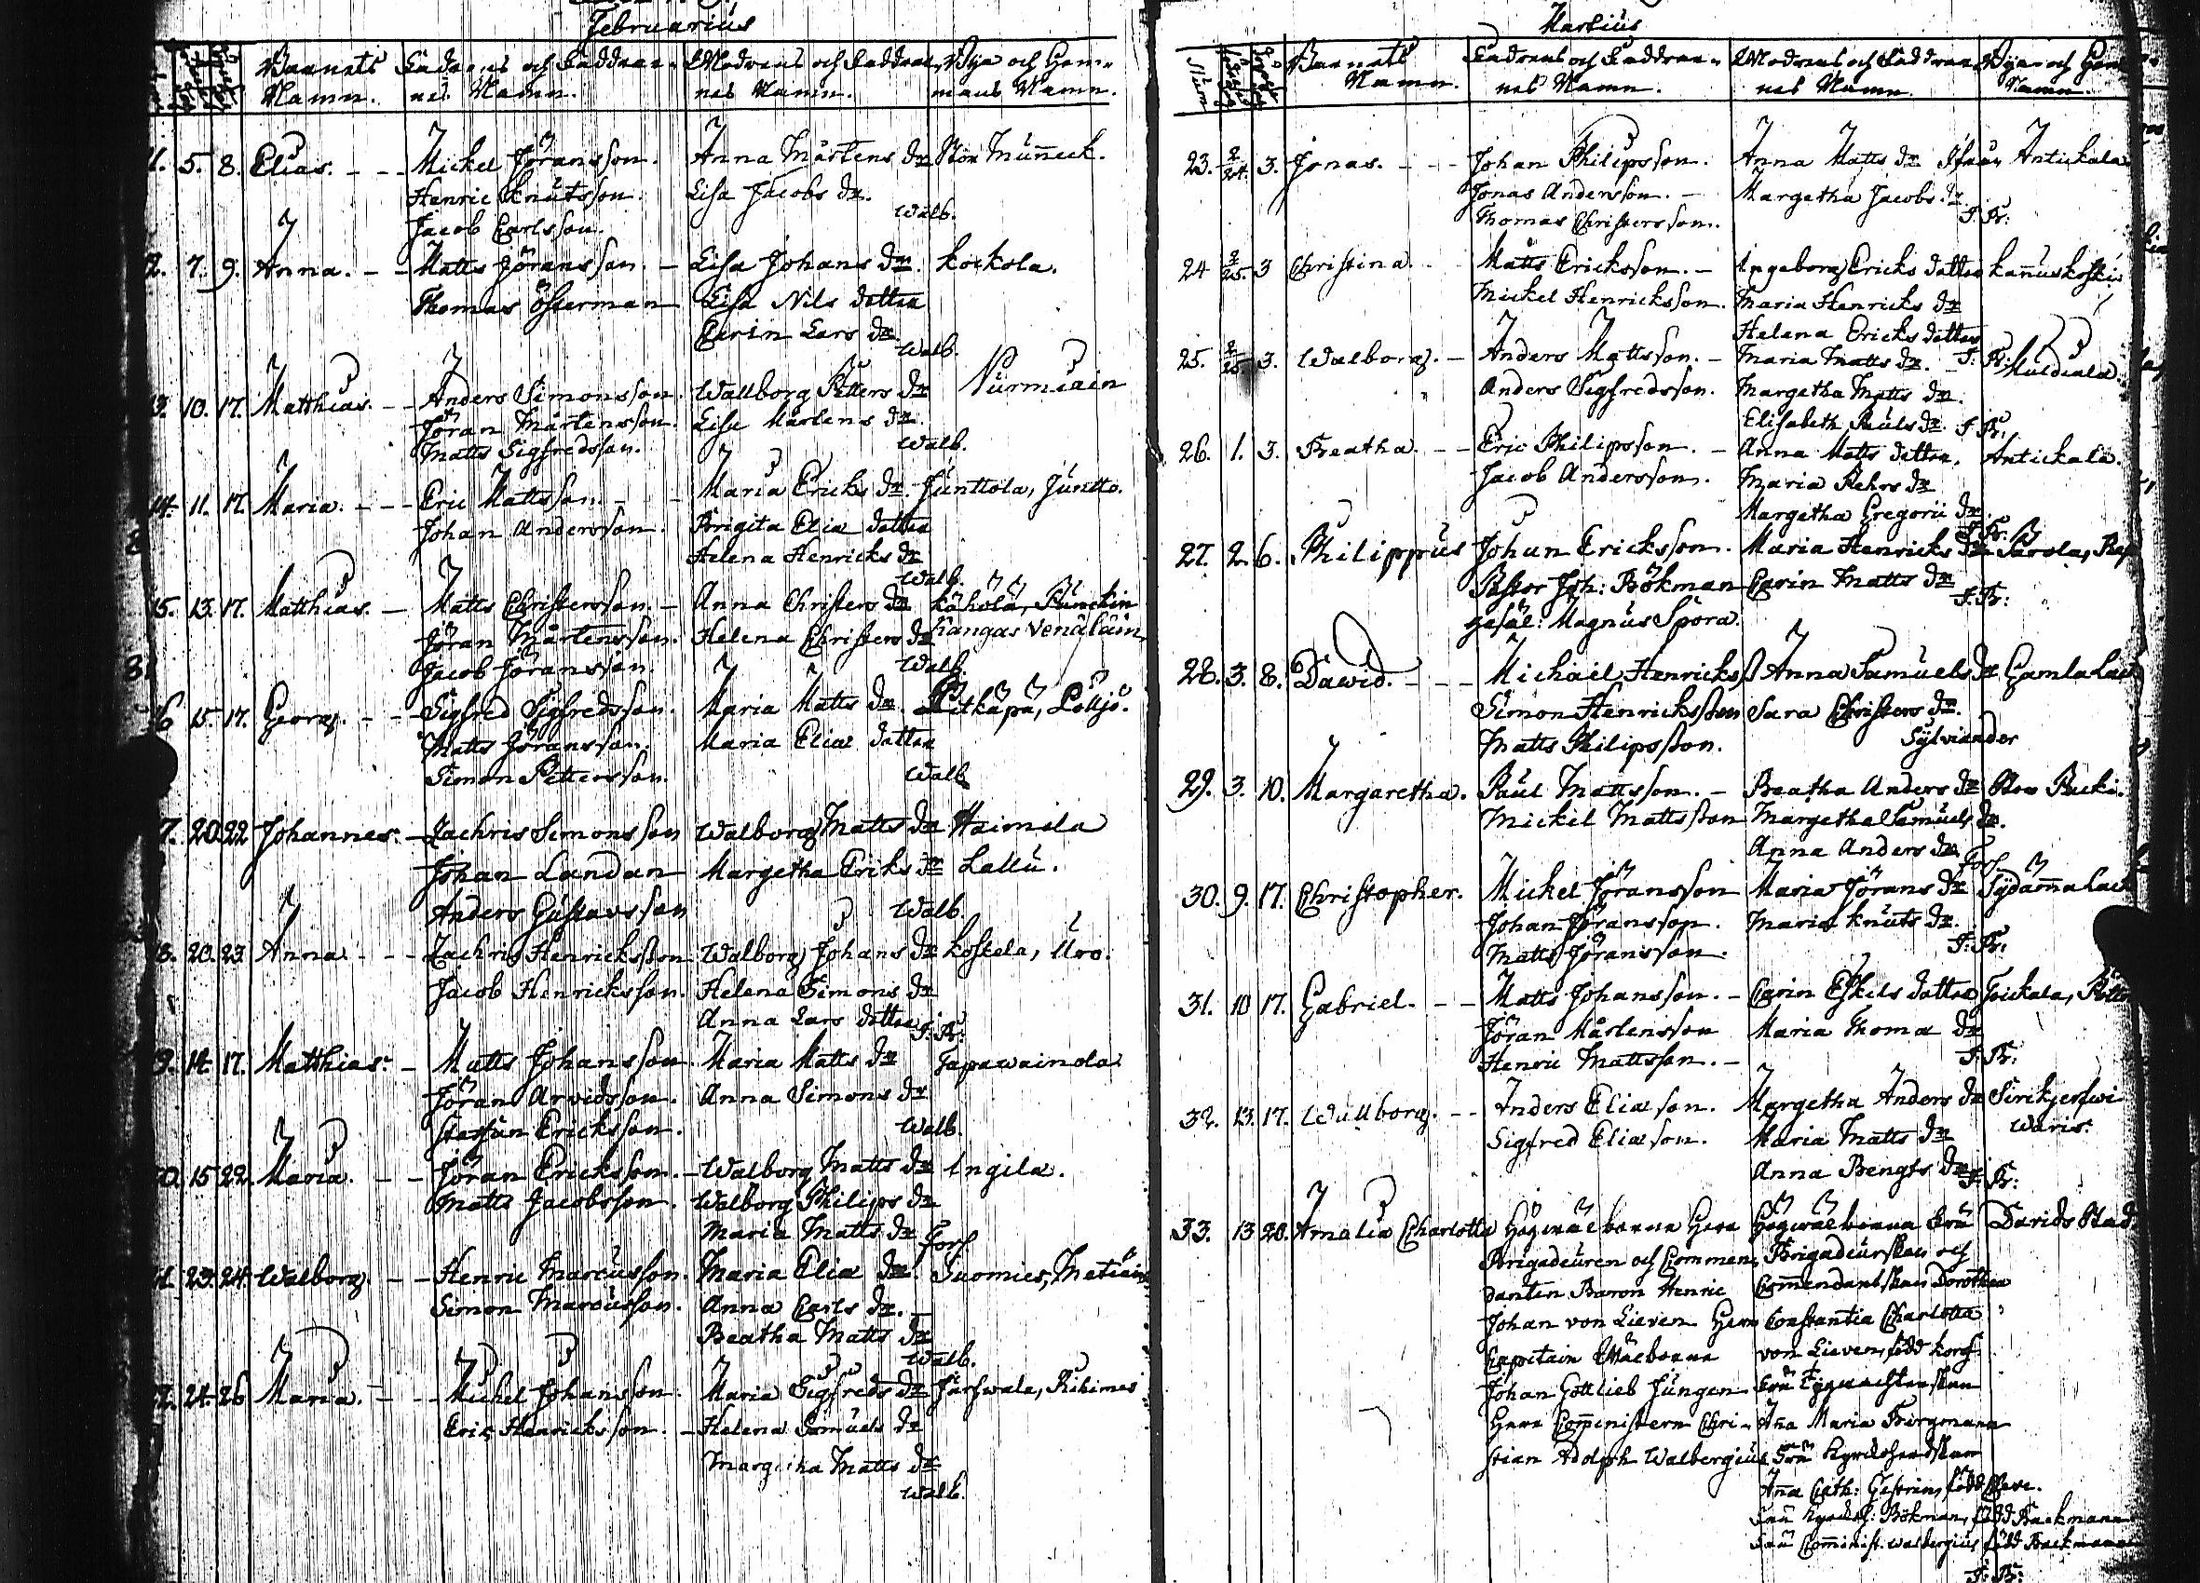 Februarius
Barnets Fadrens och Faddrar- Modrens och Faddrar- Bya och Hem-
Namn. nes Namn. nes Namn. mans Namn.
11. 5. 8. Elias. - - Mickel Jöransson. Anna Mårtens dr Stor Muneck.
Henric Knutsson. Lisa Jacobs dr.
Jacob Carlsson. Walb.
12. 7. 9. Anna. - - Matts Jöransson. - Lisa Johans dr. Kockola.
Thomas Österman Lisa Nils dotter
Carin Lars dr
Walb.
13. 10. 17. Matthias. - - Anders Simonsson. Wallborg Petters dr Nurmiain
Jöran Mårtensson. Lisa Mårtens dr.
Matts Sigfredsson. Walb.
14. 11. 17. Maria. - - Eric Mattsson. - - Maria Ericks dr. Junttola, Juntto.
Johan Andersson. Brigita Eliæ dotter
Helena Henricks dr
Walb.
15. 13. 17. Matthias. - Matts Christersson. - Anna Christers dr Kähölä, Punckin
Jöran Mårtensson. Helena Christers dr Kangas Venäläin
Jacob Jöransson. Walb.
16 15. 17. Georg. - - Sigfred Sigfredsson. Maria Matts dr. Pitkäpä, Pölljö.
Matts Jöransson. Maria Eliæ dotter
Simon Pettersson. Walb
17. 20. 22 Johannes. - Zachris Simonsson Walborg Matts dr Haimila
Johan Landan Margetha Eriks dr Lallu.
Anders Gustavsson Walb.
18. 20. 23 Anna - - - Zachris Henricksson Walborg Johans dr Koskela, Uro.
Jacob Henricksson. Helena Simons dr
Anna Lars dotter J: Fr:
19. 14. 17. Matthias. - Matts Johansson Maria Matts dr Tapawainola
Jöran Arvidsson. Anna Simons dr
Staffan Ericksson. Walb.
20. 15 22. Maria. - - Jöran Ericksson. - Walborg Matts dr Ingila.
Matts Jacobsson. Walborg Philips dr
Maria Matts dr Fors
21. 23. 24. Walborg. - - Henric Marcusson. Maria Eliæ dr. Suomies,
Simon Marcusson. Anna Carls dr. -
Beatha Matts dr
Walb.
22. 24. 26 Maria. - - Mickel Johansson. Maria Sigfreds dr Järfwala, Rihimes
Eric Henricksson. - Helena Samuels dr
Margetha Matts dr
Walb.
Martius
Barnets Fadrens och Faddrar- Modrens och Faddrar- Byar och Hem
Namn. nes Namn. nes Namn. Namn.
23. 2/24. 3. Jonas. - - - Johan Philipsson. Anna Matts dr Antickala
Jonas Andersson. - Margetha Jacobs dr.
Thomas Christersson. J: Fr:
24 2/25. 3 Christina. - Matts Ericksson. - Ingeborg Ericks dotter Kannuskoski
Mickel Henricksson. Maria Henricks dr
Helena Ericks dotter
25. 3. Walborg. - Anders Mattsson. - Maria Matts dr. - J: Fr:
Anders Sigfredsson. Margetha Matts dr.
Elisabeth Pauls dr. J: Fr:
26. 1. 3. Beatha. - - Eric Philipsson. - Anna Matts dotter. Antickala.
Jacob Andersson. Maria Pehrs dr
Margetha Gregorii dr
J: Fr:
27. 2. 6. Philippus Johan Ericksson. Maria Henricks dr
Pastor Joh: Bökman Carin Matts dr
Gesäl: Magnus Spora. J: Fr:
28. 3. 8. Dawid. - - - Michaël Henricks Anna Samuels dr Gamla
Simon Henricksson Sara Christers dr.
Matts Philipsson. Sylviander
29. 3. 10. Margaretha. Paul Mattsson. - Beatha Anders dr Stor Pucki.
Mickel Mattsson Margetha Samuels dr.
Anna Anders dr
Fors
30. 9. 17. Christopher. Mickel Jöransson Maria Jörans dr
Johan Jöransson. Maria Knuts dr.
Matts Jöransson. J: Fr:
31. 10 17. Gabriel. - - Matts Johansson. - Carin Eskels dotter Toickala,
Jöran Mårtensson Maria Thomæ dr
Henric Mattsson. - J: Fr:
32. 13. 17. Wallborg. - - Anders Eliæson. Margetha Anders dr Sirckjerfwi
Sigfred Eliæson. Maria Matts dr Waris.
Anna Bengts dr
J: Fr:
33. 13 20. Amalia Charlotta Högwälborne Herr Högwälborna Fru Davids Stad.
Brigadeuren och Commen- Brigadeurskan och
danten Baron Henric Commendantskan Dorothea
Johan von Lieven Constantia Charlotta
Capitain Wälborne von Lieven, född Korf
Johan Gottlieb Jungen Fru
Herr Comministern Chri- Anna Maria Bergmann
stian Adolph Walbergius Fru Kyrckoherdskan
Anna Cath:
Fru Kyrckoh: Bökman, född Backmann
Fru Comminist. Walbergius född Backmann
J: Fr: